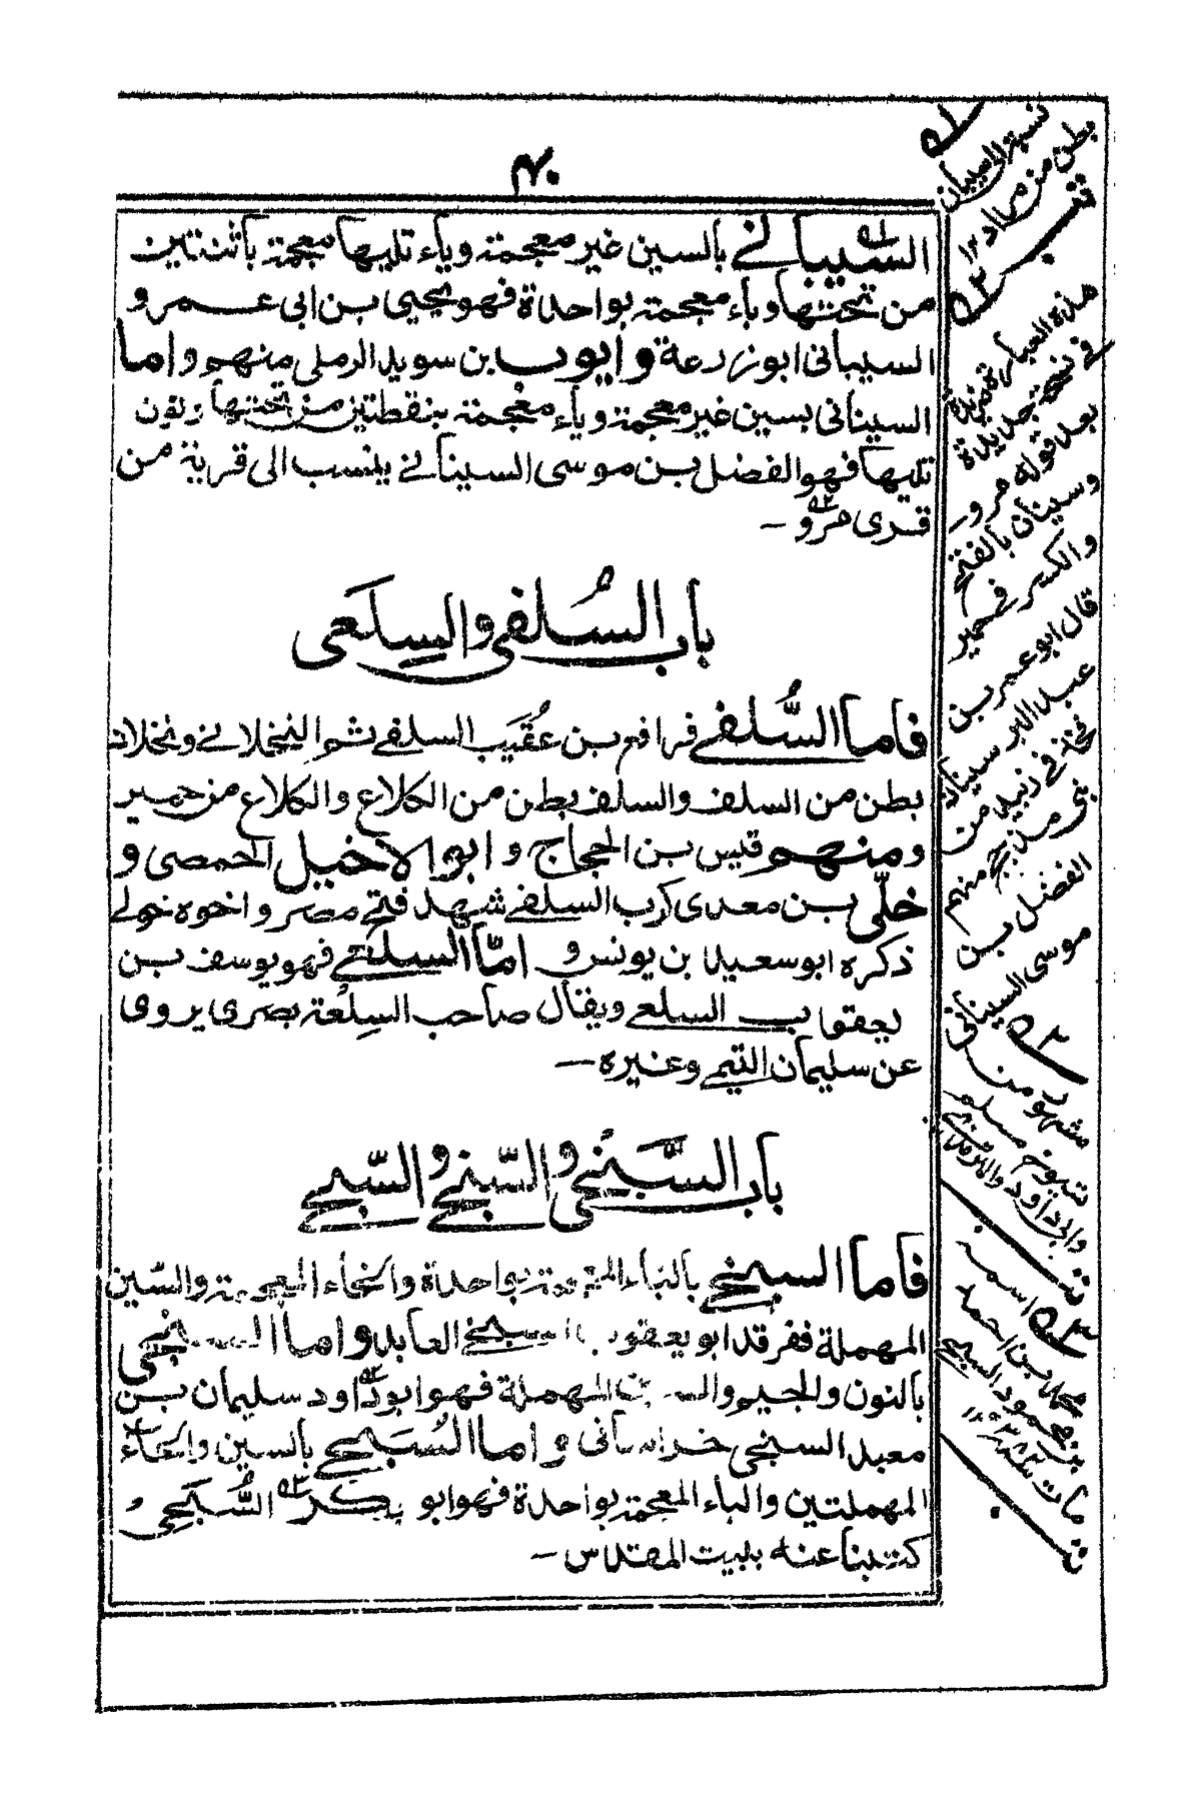 ٤٠
السيباني بالسين غير معجمة وياء تليها معجمة باثنتين
من تحتها وباء معجمة بواحدة فهو يحيى بن ابي عمرو
السيباني ابو زرعة وايوب بن سويد الرملي منهم واما
السيناني بسين غير معجمة وياء معجمة بنقطتين من تحتها ونون
تليها فهو الفضل بن موسى السيناني ينسب الى قرية من
قرى مرو ـ
باب السلفي والسلعي
فاما السُّلفي فرافع بن عُقَيب السلفي ثم النخلاني ونخلان
بطن من السلف والسلف بطن من الكلاع والكلاع من حمير
ومنهم قيس بن الحجاج و ابو الاخيل الحمصي و
خلّى بن معدى كرب السلفي شهد فتح مصر واخوه خولي
ذكره ابو سعيد بن يونس و امّا السلعي فهو يوسف بن
يعقوب السلعي ويقال صاحب السِلعة بصرى يروى
عن سليمان التيمي وغيره ـ
باب السَّبَخي و السّنجي و السّبحي
فاما السبخي بالباء المعجمة بواحدة والخاء المعجمة والسّين
المهملة ففرقد ابو يعقوب السبخي العابد واما السنجي
بالنون والجيم والسين المهملة فهو ابو داود سليمان بن
معبد السنجي خراساني و اما السُبَحي بالسين والحاء
المهملتين والباء المعجمة بواحدة فهو ابو بكر السُّبَحي
كتبنا عنه ببيت المقدس ـ
نسبة الى سيبان
بطن من مراد ١٢
هذه العبارة
في نسخة جديدة
بعد قوله مرو
وسينان بالفتح
والكسر في حمير
قال ابو عمر بن
عبد البر سينان
فخذ في زبيد من
بني مذحج منهم
الفضل بن
موسى السيناني
مشهور من
شيوخ مسلم
وابي داود والترمذي
اسمه
محمد بن احمد
بن محمود السبحي
مات